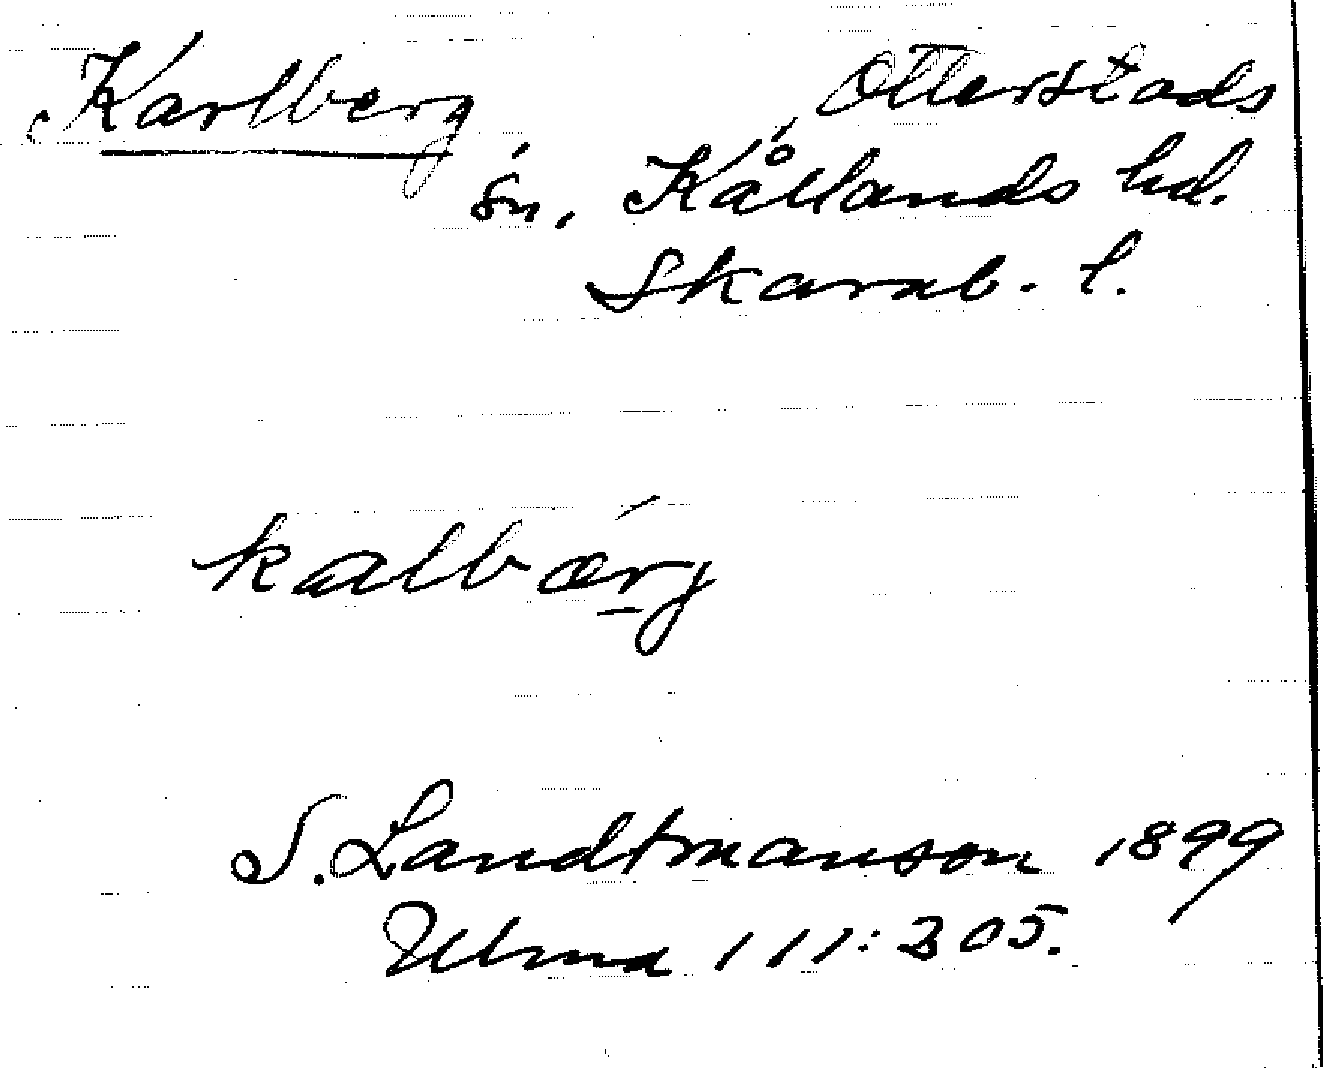 Karlberg Otterstads
sn, Kållands hd.
Skarab. l.
kalbærg
S. Landtmanson 1899
Ulma 111:305.